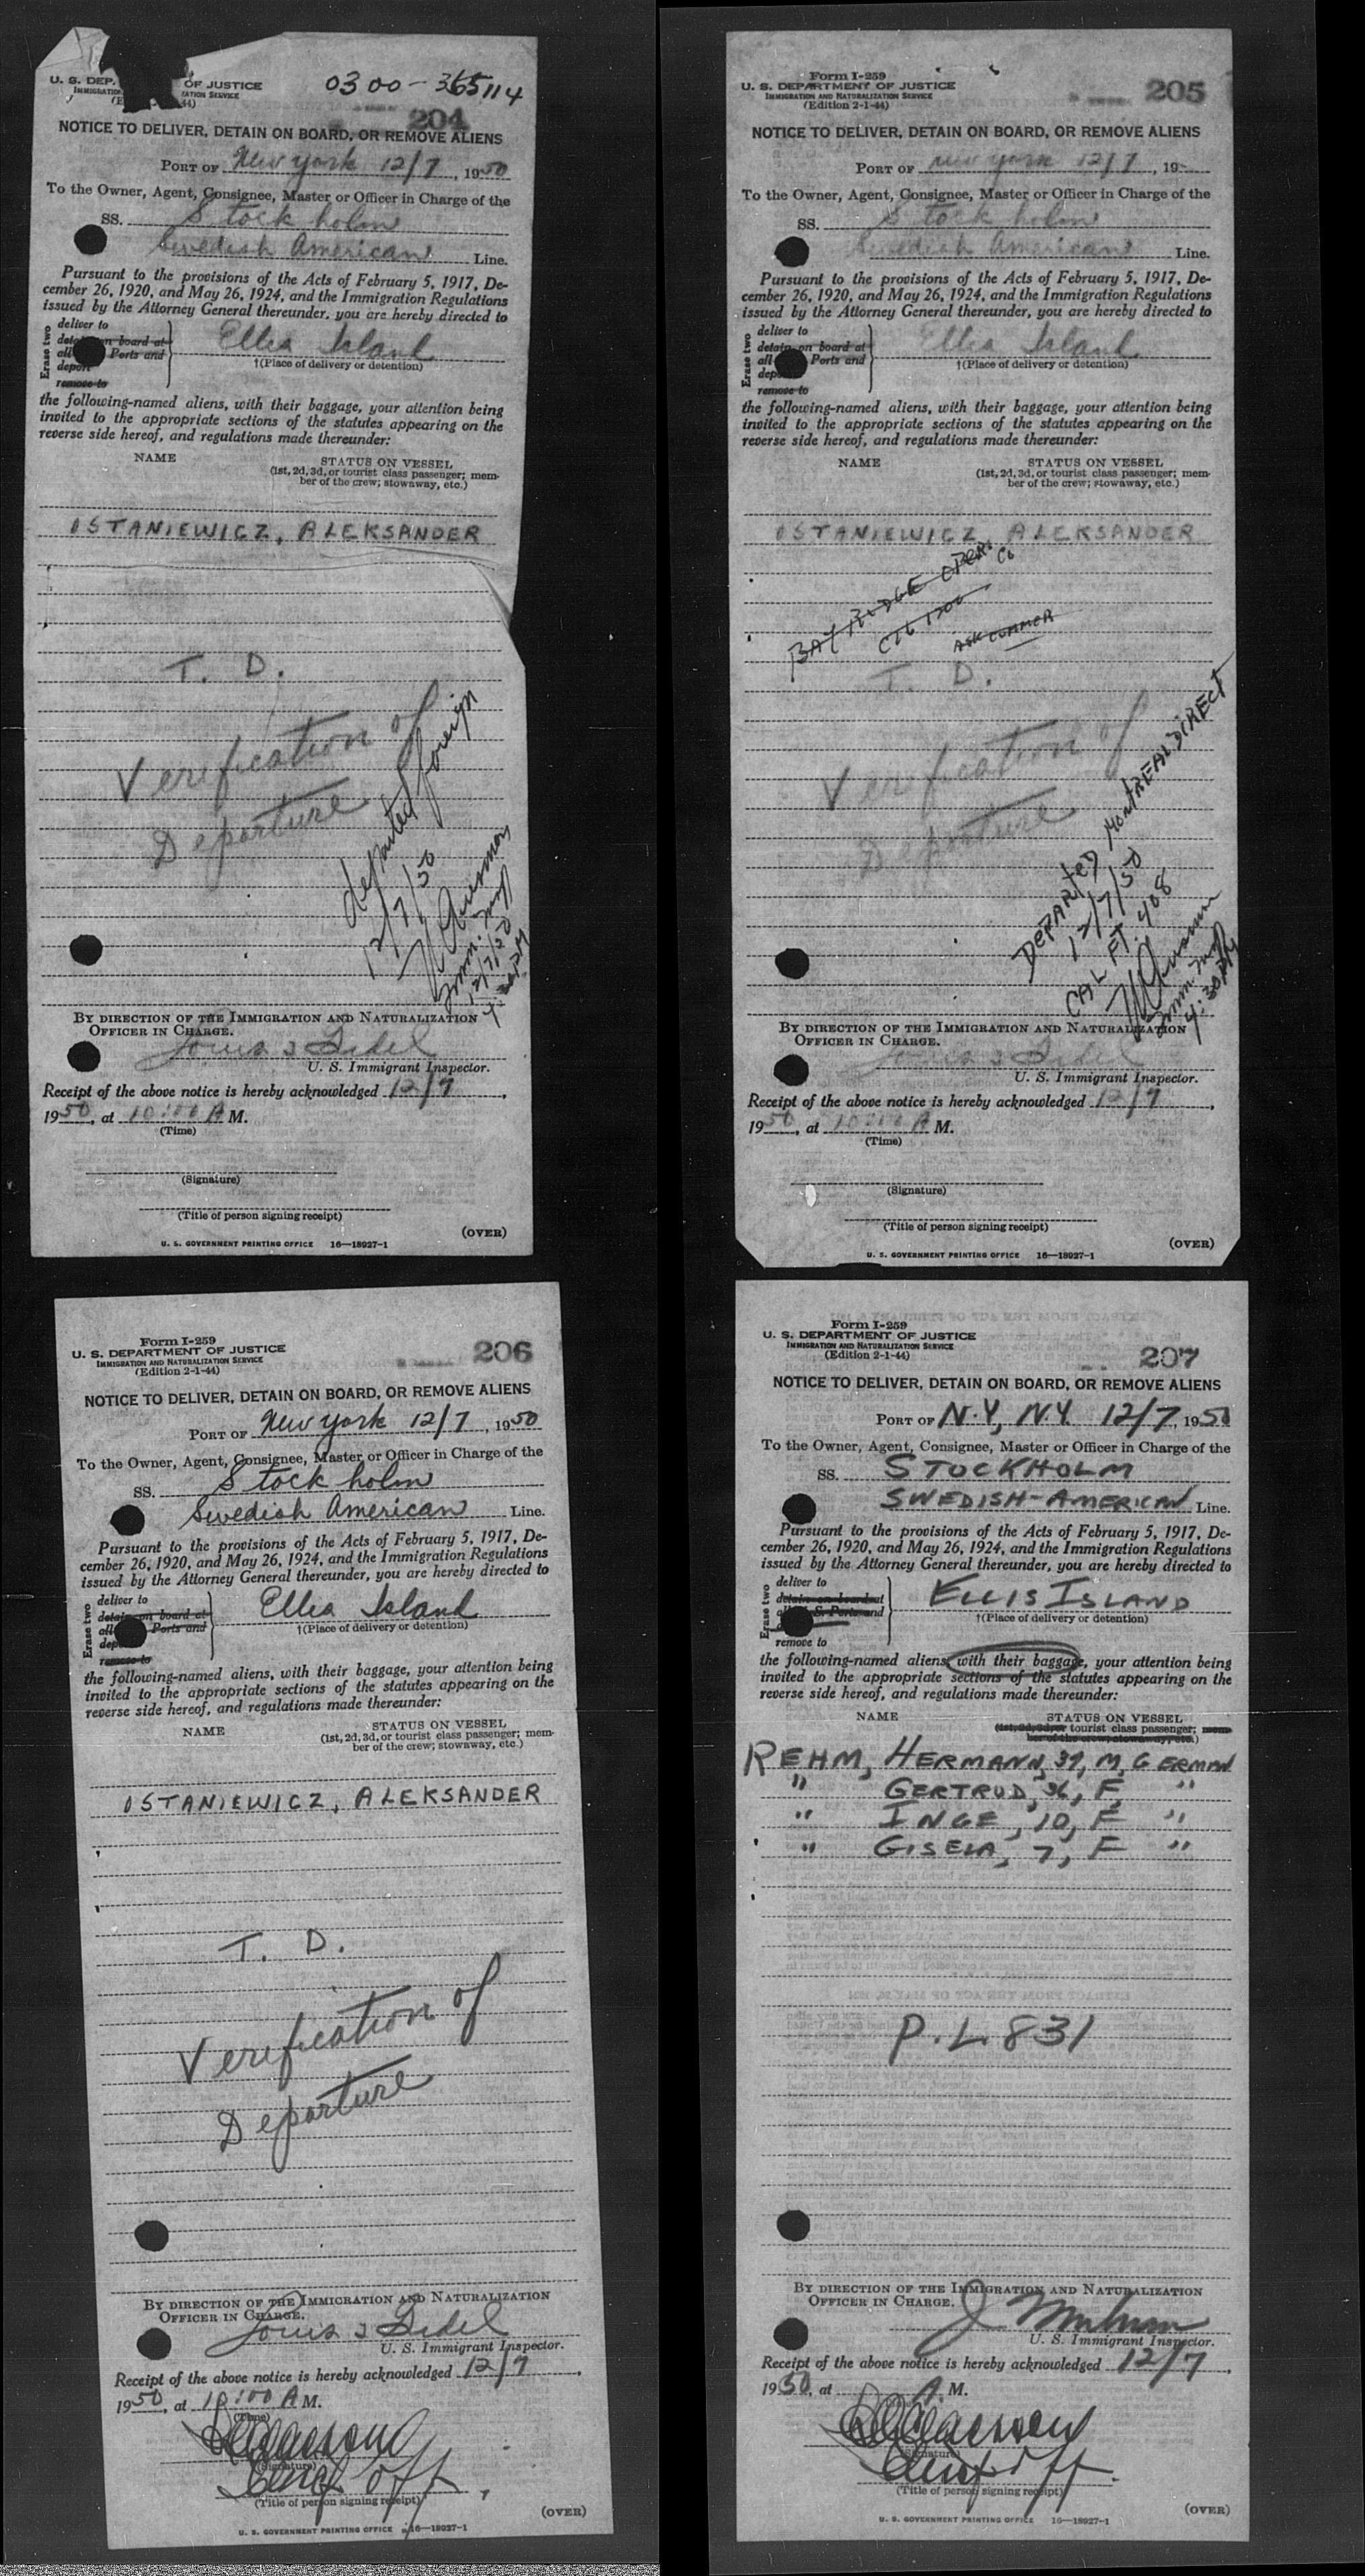 U. S. DEP. OF JUSTICE
IMMIGRATION ZATION SERVICE
44)
0300-365114
204
NOTICE TO DELIVER, DETAIN ON BOARD, OR REMOVE ALIENS
PORT OF New York 12/7, 1950
To the Owner, Agent, Consignee, Master or Officer in Charge of the
SS. Stockholm
Swedish American Line.
Pursuant to the provisions of the Acts of February 5, 1917, De-
cember 26, 1920, and May 26, 1924, and the Immigration Regulations
issued by the Attorney General thereunder, you are hereby directed to
Erase two
deliver to
detain on board at
all Ports and
deport
remove to
Ellis Island
†(Place of delivery or detention)
the following-named aliens, with their baggage, your attention being
invited to the appropriate sections of the statutes appearing on the
reverse side hereof, and regulations made thereunder:
NAME STATUS ON VESSEL
(1st, 2d, 3d, or tourist class passenger; mem-
ber of the crew; stowaway, etc.)
OSTANIEWICZ, ALEKSANDER
T. D.
Verification of
Departure
departed foreign
12/7/50
Imm. Insp
12/7/50
BY DIRECTION OF THE IMMIGRATION AND NATURALIZATION
OFFICER IN CHARGE.
U. S. Immigrant Inspector.
Receipt of the above notice is hereby acknowledged 12/7,
1950, at 10:00 A M.
(Time)
(Signature)
(Title of person signing receipt)
(OVER)
U. S. GOVERNMENT PRINTING OFFICE 16—18927-1
Form I-259
U. S. DEPARTMENT OF JUSTICE
IMMIGRATION AND NATURALIZATION SERVICE
(Edition 2-1-44)
205
NOTICE TO DELIVER, DETAIN ON BOARD, OR REMOVE ALIENS
PORT OF New York 12/7, 19
To the Owner, Agent, Consignee, Master or Officer in Charge of the
SS. Stockholm
Swedish American Line.
Pursuant to the provisions of the Acts of February 5, 1917, De-
cember 26, 1920, and May 26, 1924, and the Immigration Regulations
issued by the Attorney General thereunder, you are hereby directed to
Erase two
deliver to
detain on board at
all Ports and
remove to
Ellis Island
†(Place of delivery or detention)
the following-named aliens, with their baggage, your attention being
invited to the appropriate sections of the statutes appearing on the
reverse side hereof, and regulations made thereunder:
NAME STATUS ON VESSEL
(1st, 2d, 3d, or tourist class passenger; mem-
ber of the crew; stowaway, etc.)
OSTANIEWICZ, ALEKSANDER
BAY RIDGE OPER. Co
T. D.
Verification of
Departure
DEPARTED MONTREAL DIRECT
12/7/50
CAL FT. 408
Imm. Insp
4:30 PM
BY DIRECTION OF THE IMMIGRATION AND NATURALIZATION
OFFICER IN CHARGE.
U. S. Immigrant Inspector.
Receipt of the above notice is hereby acknowledged 12/7,
1950, at 10:00 A M.
(Time)
(Signature)
(Title of person signing receipt)
(OVER)
U. S. GOVERNMENT PRINTING OFFICE 16—18927-1
Form I-259
U. S. DEPARTMENT OF JUSTICE
IMMIGRATION AND NATURALIZATION SERVICE
(Edition 2-1-44)
206
NOTICE TO DELIVER, DETAIN ON BOARD, OR REMOVE ALIENS
PORT OF New York 12/7, 1950
To the Owner, Agent, Consignee, Master or Officer in Charge of the
SS. Stockholm
Swedish American Line.
Pursuant to the provisions of the Acts of February 5, 1917, De-
cember 26, 1920, and May 26, 1924, and the Immigration Regulations
issued by the Attorney General thereunder, you are hereby directed to
Erase two
deliver to
detain on board at
all Ports and
remove to
Ellis Island
†(Place of delivery or detention)
the following-named aliens, with their baggage, your attention being
invited to the appropriate sections of the statutes appearing on the
reverse side hereof, and regulations made thereunder:
NAME STATUS ON VESSEL
(1st, 2d, 3d, or tourist class passenger; mem-
ber of the crew; stowaway, etc.)
OSTANIEWICZ, ALEKSANDER
T. D.
Verification of
Departure
BY DIRECTION OF THE IMMIGRATION AND NATURALIZATION
OFFICER IN CHARGE.
U. S. Immigrant Inspector.
Receipt of the above notice is hereby acknowledged 12/7,
1950, at 10:00 A M.
(Time)
(Signature)
(Title of person signing receipt)
(OVER)
U. S. GOVERNMENT PRINTING OFFICE 16—18927-1
Form I-259
U. S. DEPARTMENT OF JUSTICE
IMMIGRATION AND NATURALIZATION SERVICE
(Edition 2-1-44)
207
NOTICE TO DELIVER, DETAIN ON BOARD, OR REMOVE ALIENS
PORT OF N.Y, N.Y. 12/7, 1950
To the Owner, Agent, Consignee, Master or Officer in Charge of the
SS. STOCKHOLM
SWEDISH-AMERICAN Line.
Pursuant to the provisions of the Acts of February 5, 1917, De-
cember 26, 1920, and May 26, 1924, and the Immigration Regulations
issued by the Attorney General thereunder, you are hereby directed to
Erase two
deliver to
detain on board at
all U. S. Ports and
remove to
ELLIS ISLAND
†(Place of delivery or detention)
the following-named aliens, with their baggage, your attention being
invited to the appropriate sections of the statutes appearing on the
reverse side hereof, and regulations made thereunder:
NAME STATUS ON VESSEL
(1st, 2d, 3d, or tourist class passenger; mem-
ber of the crew; stowaway, etc.)
REHM, HERMANN, 39, M, GERMAN
" GERTRUD, 36, F, "
" INGE, 10, F "
" GISELA, 7, F "
P.L. 831
BY DIRECTION OF THE IMMIGRATION AND NATURALIZATION
OFFICER IN CHARGE.
U. S. Immigrant Inspector.
Receipt of the above notice is hereby acknowledged 12/7,
1950, at A. M.
(Signature)
(Title of person signing receipt)
(OVER)
U. S. GOVERNMENT PRINTING OFFICE 16—18927-1